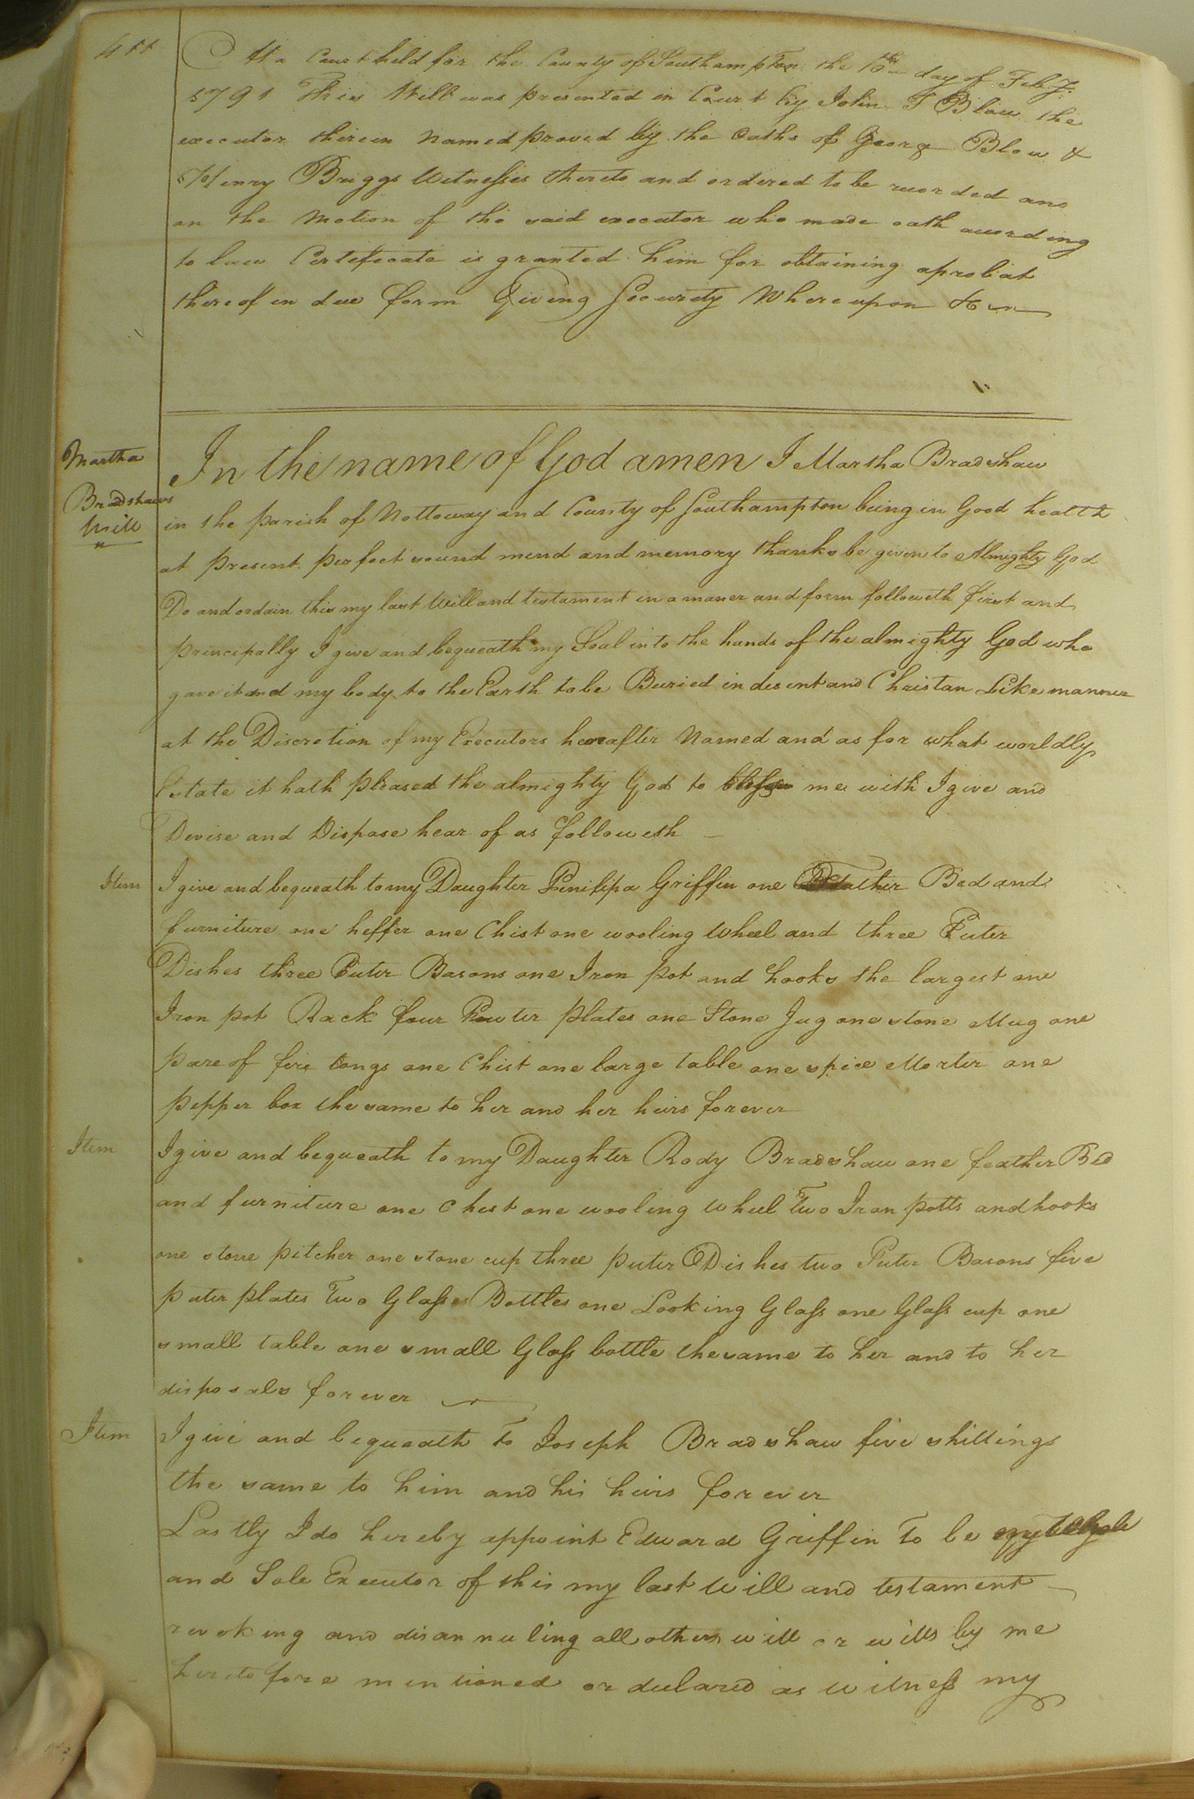 At a Court held for the County of Southampton the 10th day of Feby.
1791 This Will was presented in Court by John T Blow the
executor therein Named proved by the oaths of Georg Blow &
Henry Briggs Witnesses thereto and ordered to be recorded and
on the Motion of the said executor who made oath according
to law Certificate is granted him for obtaining aprobat
thereof in due form Giving Security Whereupon &c
Martha
Bradshaws
Will
In the name of God amen I Martha Bradshaw
in the parish of Nottoway and County of Southampton being in Good health
at present perfect sound mind and memory thanks be given to Almighty God
Do and ordain this my last Will and testament in a maner and form followeth first and
principally I give and bequeath my Soal into the hands of the almighty God who
gave it and my body to the Earth to be Buried in desent and Christan Like manner
at the Discretion of my Executors hereafter Named and as for what worldly
Estate it hath pleased the almighty God to me with I give and
Devise and Dispose hear of as followeth
Item I give and bequeath to my Daughter Griffin one Feather Bed and
furniture one heffer one Chist one wooling Wheel and three Puter
Dishes three Puter Basons one Iron pot and hooks the largest one
Iron pot Rack four Pewter plates one Stone Jug one stone Mug one
pare of fire tongs one Chist one large table one spice Morter one
pepper box the same to her and her heirs forever
Item I give and bequeath to my Daughter Rody Bradshaw one feather Bed
and furniture one Chest one wooling wheel Two Iron potts and hooks
one stone pitcher one stone cup three puter Dishes two Puter Basons five
puter plates Two Glass Bottles one Looking Glass one Glass cup one
small table one small Glass bottle the same to her and to her
disposals forever
Item I give and bequeath to Joseph Bradshaw five shillings
the same to him and his heirs forever
Lastly I do hereby appoint Edward Griffin To be
and Sole Executor of this my last Will and testament
revoking and disannuling all others will or wills by me
heretofore mentioned or declared as witness my